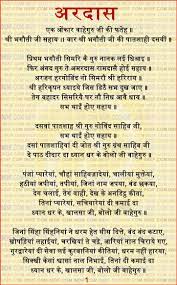 अरदास
एक ओंकार वाहेगुरू जी की फतेह॥
श्री भगौती जी सहाय ॥ वार श्री भगौती जी की पातशाही दसवीं॥
प्रिथम भगौती सिमरि कै गुर नानक लई धिआइ॥
फिर अंगद गुर ते अमरदास रामदासै होई सहाय॥
अरजन हरगोबिंद नो सिमरौ श्री हरिराय॥
श्री हरिकृष्न ध्याइये जिस डिठै सभ दुख जाए॥
तेग बहादर सिमरियै घर नौ निध आवै धाय॥
सभ थाईं होए सहाय॥
दसवां पातशाह श्री गुरु गोबिंद साहिब जी,
सभ थाईं होए सहाय॥
दसां पातशाहियां दी जोत श्री गुरु ग्रंथ साहिब जी
दे पाठ दीदार दा ध्यान धर के, बोलो जी वाहेगुरु॥
पंजां प्यारेयां, चौहां साहिबजादेयां, चालीयां मुक्तेयां,
हठीयां जपीयां, तपीयां, जिनां नाम जपया, वंड छकया,
देग चलाई, तेग वाही, देख के अनडिठ कीता,
तिनां प्यारेयां, सचियारेयां दी कमाई दा
ध्यान धर के, खालसा जी, बोलो जी वाहेगुरु॥
जिनां सिंहां सिंहनियां ने धरम हेत सीस दित्ते, बंद बंद कटाए,
खोपड़ियां लुहाईयां, चरखियां ते चढ़े, आरियां नाल चिराए गए,
गुरद्वारेयां दी सेवा लई कुरबानियां कीतियां, धरम नहीं हारया,
सिक्खी केसां स्वासां नाल निबाही, तिनां दी कमाई दा
ध्यान धर के, खालसा जी, बोलो जी वाहेगुरु॥
1